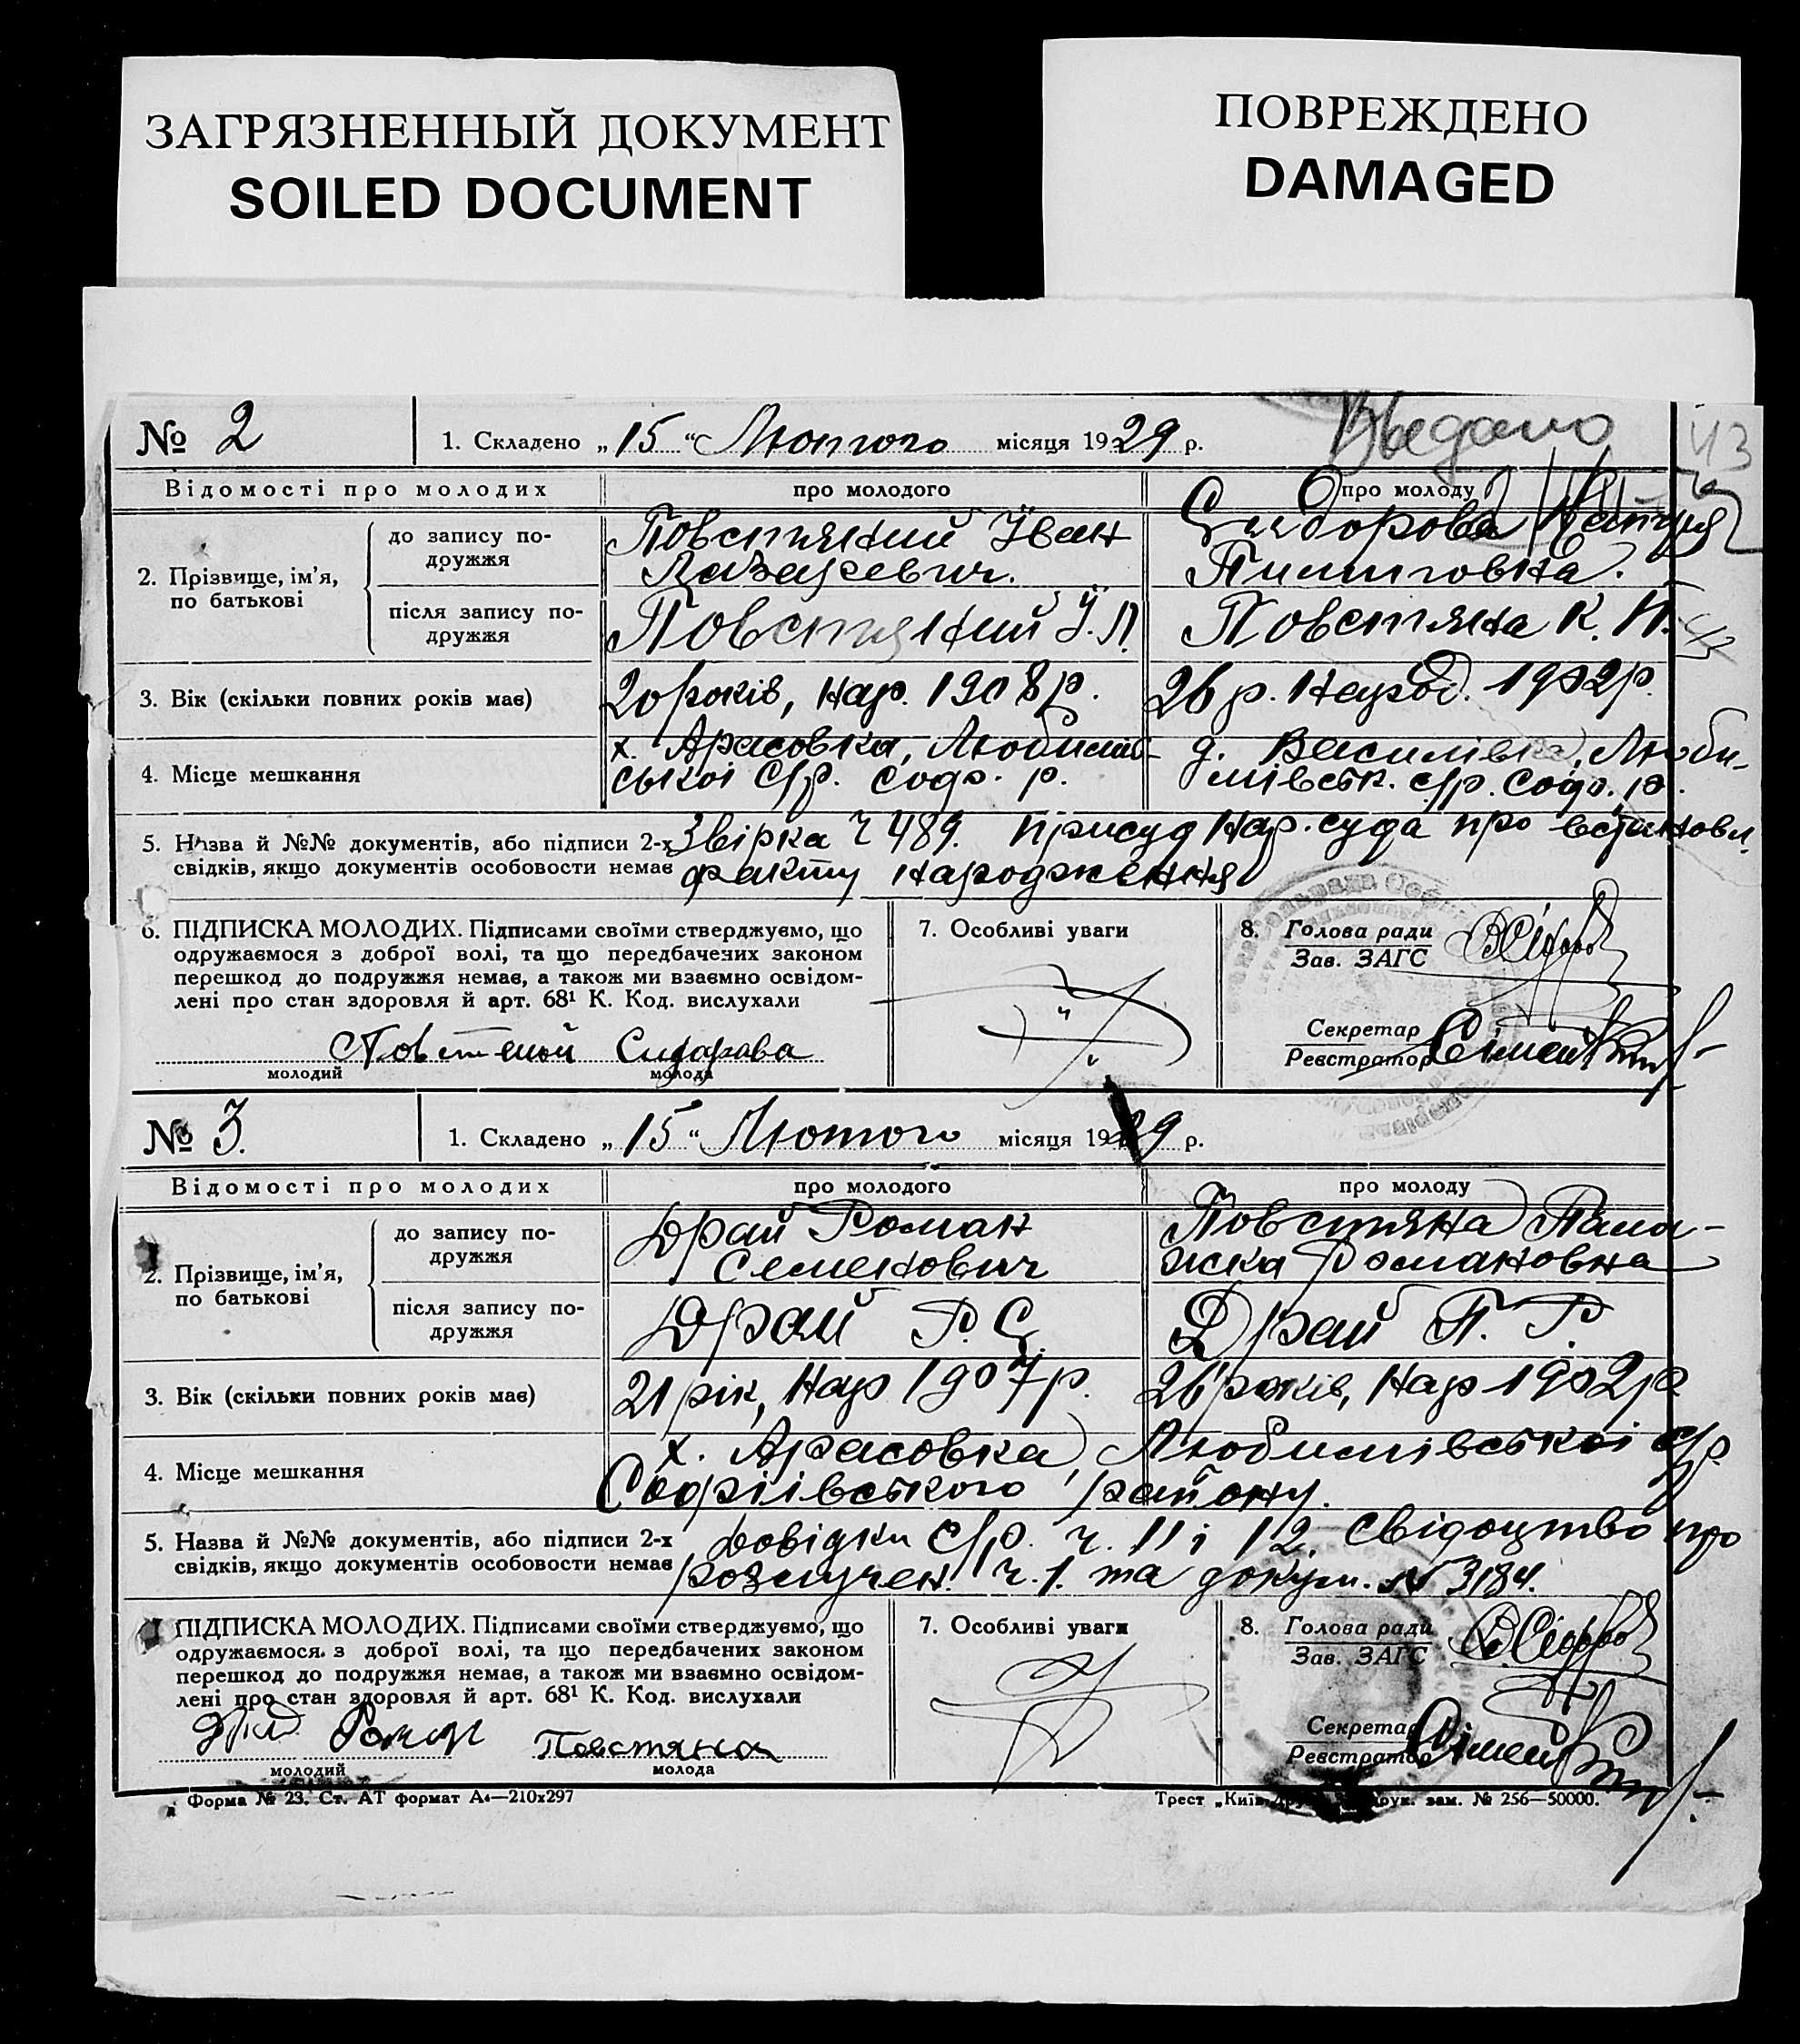 ЗАГРЯЗНЕННЫЙ ДОКУМЕНТ
SOILED DOCUMENT
ПОВРЕЖДЕНО
DAMAGED
№ 2
1. Складено „15“ Лютого місяця 1929 р.
43
Відомості про молодих
про молодого
про молоду
2. Прізвище, ім'я, по батькові
до запису подружжя
Повстяний Іван
Лазаревич.
Сидорова
Пилиповна.
після запису подружжя
Повстяний І. Л.
Повстяна К. П.
3. Вік (скільки повних років має)
20 років, нар. 1908 р.
26 р. Народ. 1902 р.
4. Місце мешкання
х. Арасовка, Любимів-
ської С/р. Соф. р.
д. Василівка, Люби-
мівськ. с/р. Соф. р.
5. Назва й №№ документів, або підписи 2-х
свідків, якщо документів особовости немає
Звірка ч 489. Присуд Нар. суда про встановл.
факту народження
6. ПІДПИСКА МОЛОДИХ. Підписами своїми стверджуємо, що
одружаємося з доброї волі, та що передбачених законом
перешкод до подружжя немає, а також ми взаємно освідом-
лені про стан здоровля й арт. 68¹ К. Код. вислухали
Сидарава
молодий
молода
7. Особливі уваги
8. Голова ради
Зав. ЗАГС
Секретар
Реєстратор
№ 3.
1. Складено „15“ Лютого місяця 1929 р.
Відомості про молодих
про молодого
про молоду
2. Прізвище, ім'я, по батькові
до запису подружжя
Драй Роман
Семенович
Повстяна Пала-
жка Романовна
після запису подружжя
Драй Р. С.
Драй П. Р.
3. Вік (скільки повних років має)
21 рік, Нар 1907 р.
26 років, Нар 1902 р
4. Місце мешкання
х. Арасовка, Любимівської с/р
Софіївського району.
5. Назва й №№ документів, або підписи 2-х
свідків, якщо документів особовости немає
Довідки с/р. ч. 11 і 12. Свідоцтво про
розлучен. ч. 1. та докум. № 3184.
ПІДПИСКА МОЛОДИХ. Підписами своїми стверджуємо, що
одружаємося з доброї волі, та що передбачених законом
перешкод до подружжя немає, а також ми взаємно освідом-
лені про стан здоровля й арт. 68¹ К. Код. вислухали
Повстяна
молодий
молода
7. Особливі уваги
8. Голова ради
Зав. ЗАГС
Секретар
Реєстратор
Форма № 23. Ст. АТ формат А₄—210х297
Трест „Київ зам. № 256—50000.